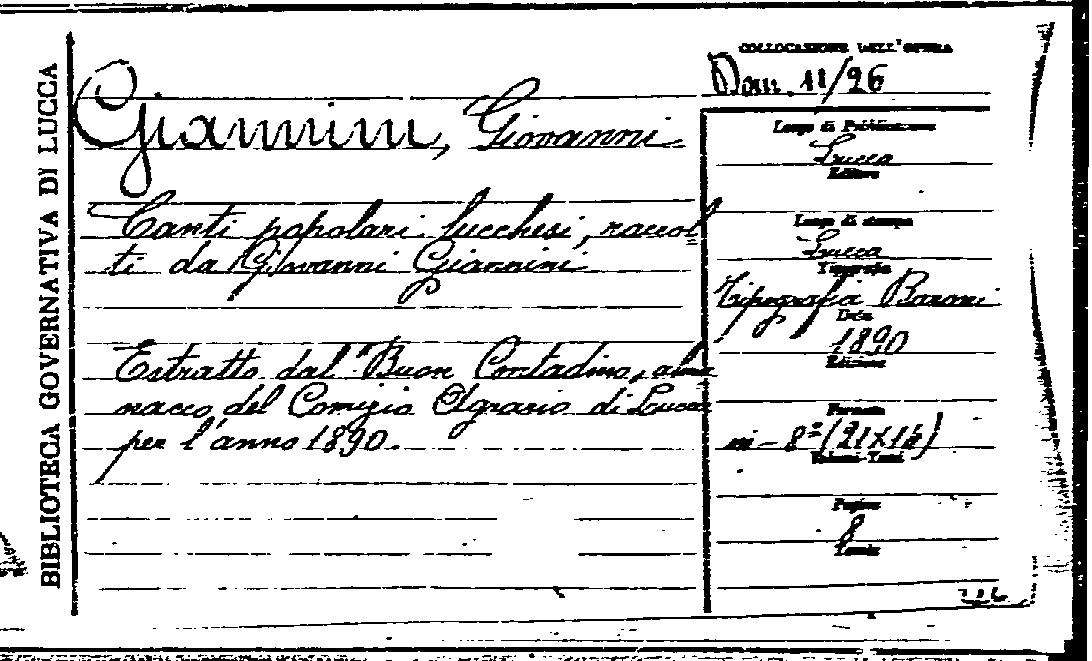 BIBLIOTECA GOVERNATIVA DI LUCCA
Giannini, Giovanni
Canti popolari lucchesi, raccol
ti da Giovanni Giannini
Estratto dal "Buon Contadino, alma
nacco del Comizio Agrario di Lucca
per l'anno 1890.
COLLOCAZIONE DELL'OPERA
Dan. 11/26
Luogo di Pubblicazione
Lucca
Editore
Luogo di stampa
Lucca
Tipografia
Tipografia Baroni
Data
1890
Edizione
Formato
in-8º (21x14)
Volumi-Tomi
Pagine
8
Tavole